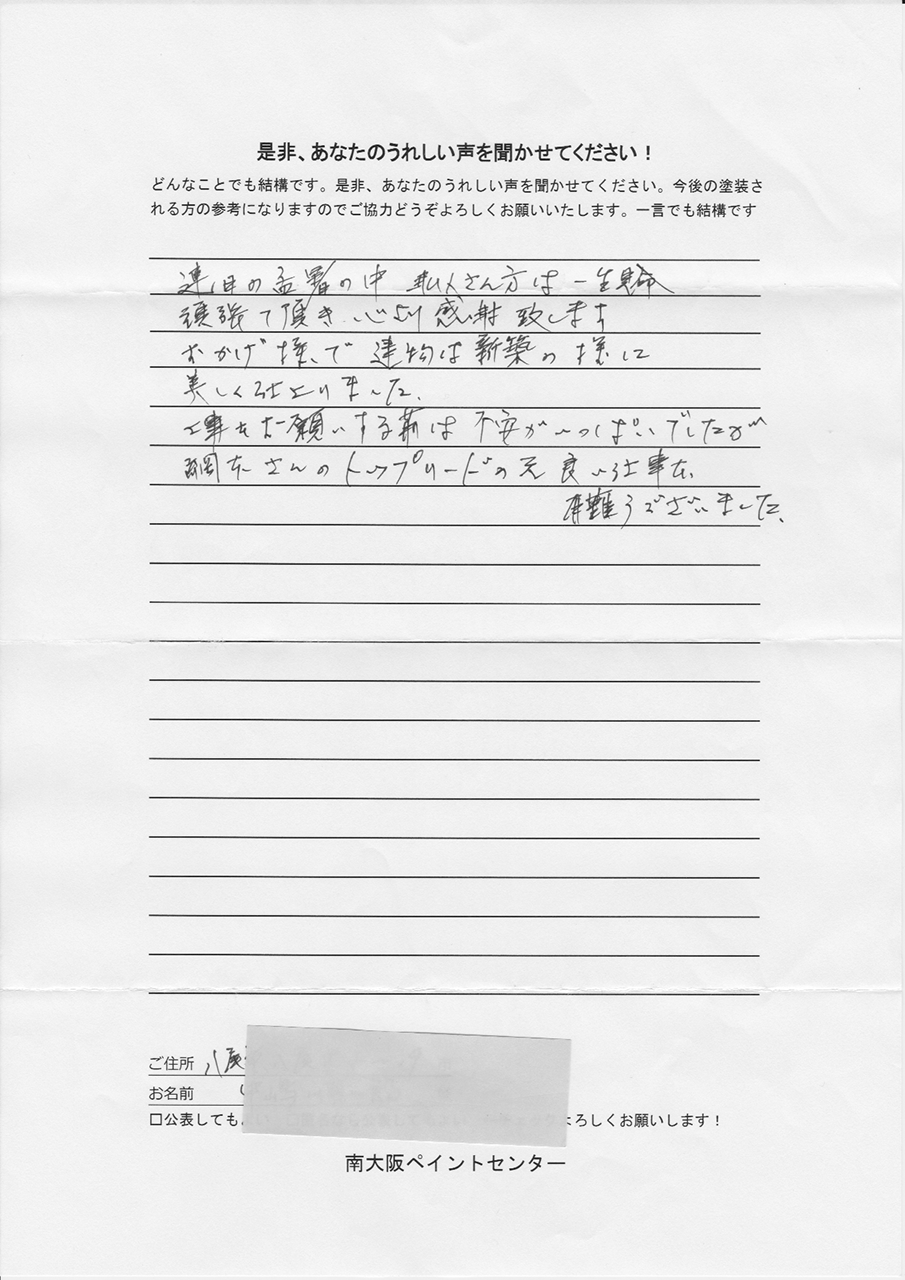 是非、あなたのうれしい声を聞かせてください！
どんなことでも結構です。是非、あなたのうれしい声を聞かせてください。今後の塗装さ
れる方の参考になりますのでご協力どうぞよろしくお願いいたします。一言でも結構です
連日の孟暑の中 職人さん方は一生懸命
頑張て頂き 心より感謝致します
おかげ様で 建物は新築の様に
美しく仕上りました.
工事をお願いする前は 不安がいっぱいでしたが
さんのトップリードの元 良い仕事を、
有難うございました.
ご住所 八尾
お名前
□公表しても よろしくお願いします！
南大阪ペイントセンター